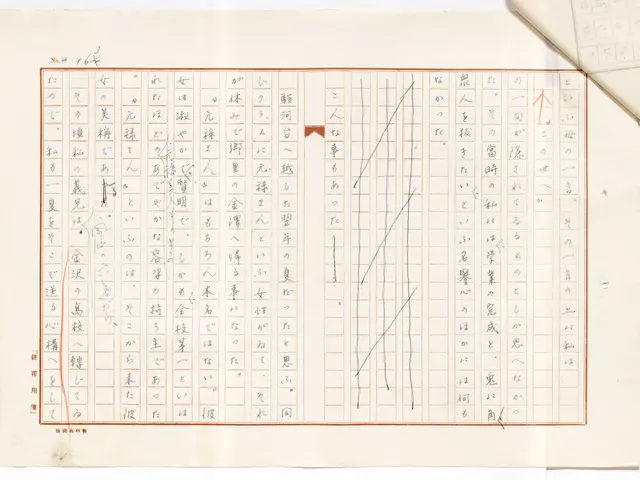 といふ母の一言。その一言の上に私は
"この世へ"
の一句が隠されてゐるものとしか思へなかつ
た。その当時の私には学業の完成と、兎に角
衆人を抜きたいといふ名誉心のほかには何も
なかつた。
こんな事もあつた——。
駿河台へ越した翌年の夏だつたと思ふ。同
じクラスに元禄さんといふ女性がゐて、それ
が休みで郷里の金澤へ帰る事になつた。
"元禄さん"はもちろん本名ではない。彼
女は淑やかで賢明で、しかも全校第一といは
れたほどのあでやかな容姿の持ち主であつた
。"元禄さん"といふのは、そこから来た彼
女の美称であ る。
その頃私の義兄は、金沢の高校へ轉じてゐ
たので、私も一夏をそこで送る心構へをして